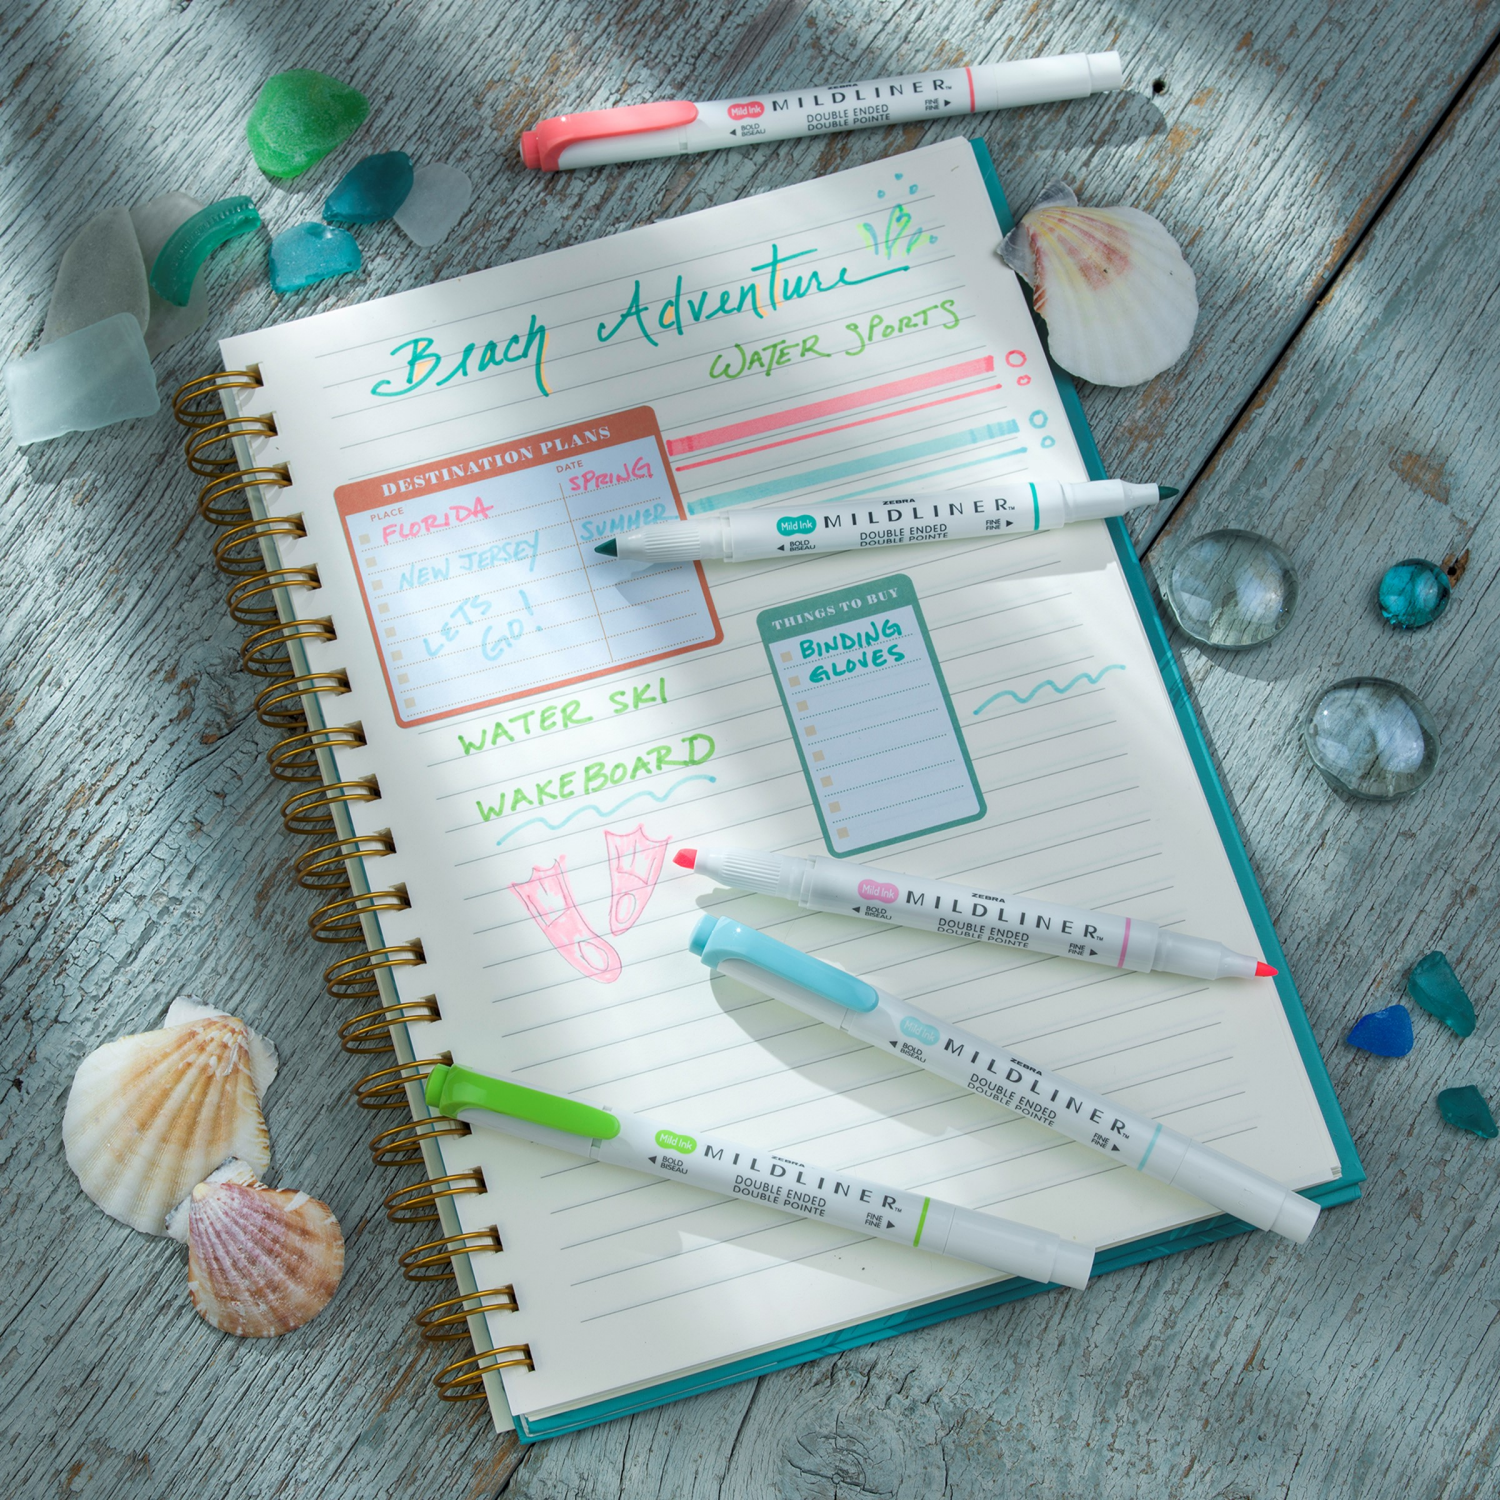 Mild Ink
ZEBRA
MILDLINER™
◀ BOLD
BISEAU
DOUBLE ENDED
DOUBLE POINTE
FINE
FINE ▶
Beach Adventure
WATER SPORTS
DESTINATION PLANS
PLACE
DATE
FLORIDA
SPRING
NEW JERSEY
SUMMER
LETS
GO!
Mild Ink
ZEBRA
MILDLINER™
◀ BOLD
BISEAU
DOUBLE ENDED
DOUBLE POINTE
FINE
FINE ▶
THINGS TO BUY
BINDING
GLOVES
WATER SKI
WAKEBOARD
Mild Ink
ZEBRA
MILDLINER™
◀ BOLD
BISEAU
DOUBLE ENDED
DOUBLE POINTE
FINE
FINE ▶
Mild Ink
ZEBRA
MILDLINER™
◀ BOLD
BISEAU
DOUBLE ENDED
DOUBLE POINTE
FINE
FINE ▶
Mild Ink
ZEBRA
MILDLINER™
◀ BOLD
BISEAU
DOUBLE ENDED
DOUBLE POINTE
FINE
FINE ▶